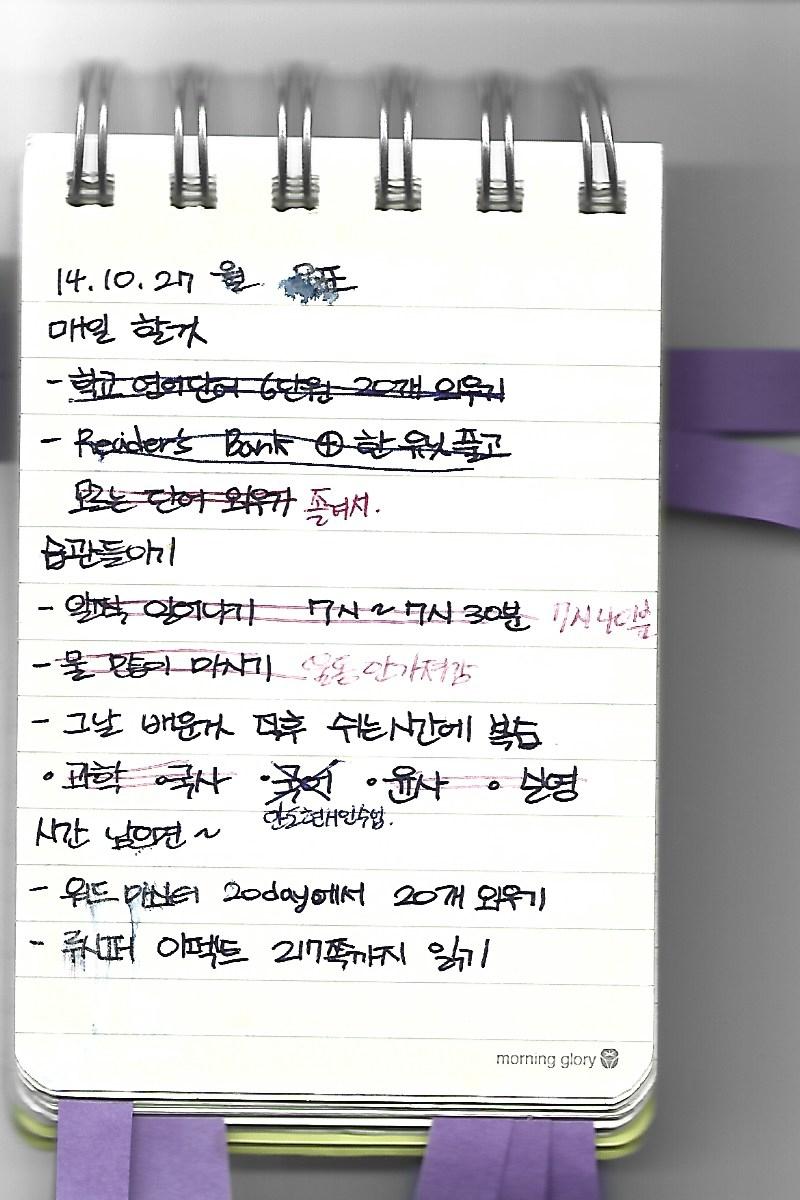 14.10.27 월
매일 할거
- 학교 영어단어 6단원 20개 외우기
- Reader's Bank ⊕ 한 유닛 풀고
모르는 단어 외우기 졸려서.
습관들이기
- 일찍 일어나기 7시 ~ 7시 30분 7시
- 물 많이 마시기 안가져감
- 그날 배운거 직후 쉬는시간에 복습
• 과학 • 국사 • 국어 • 윤사 • 실영
시간 남으면 ~
- 워드마스터 20day에서 20개 외우기
- 루시퍼 이펙트 217쪽까지 읽기
morning glory